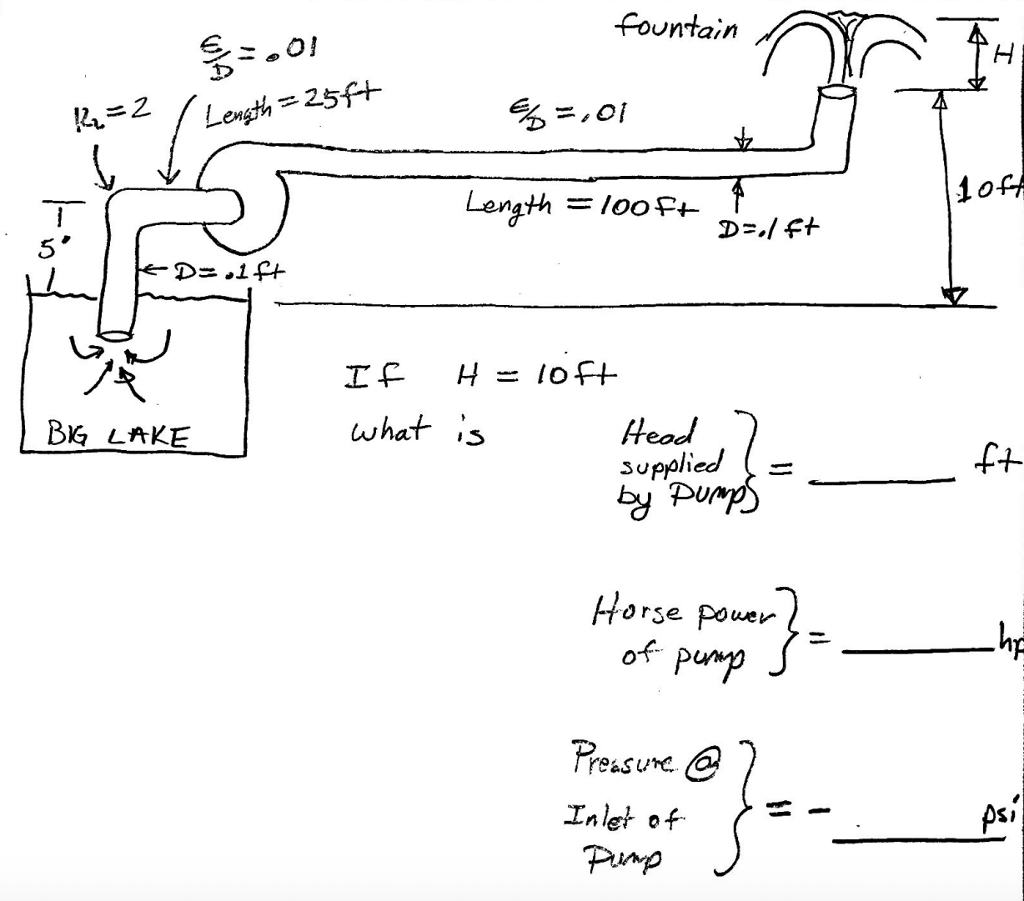 fountain
ϵ/D = .01
H
K_L = 2
Length = 25ft
ϵ/D = .01
10ft
Length = 100ft
D = .1 ft
5'
D = .1 ft
If H = 10 ft
BIG LAKE
what is
Head
supplied
by Pump
= ft
Horse power
of pump
= hp
Pressure @
Inlet of
Pump
= - psi